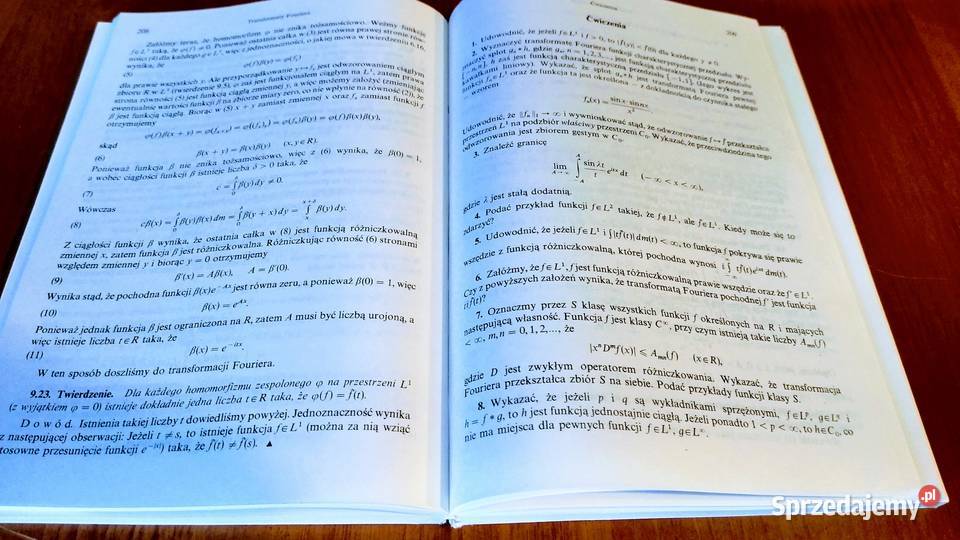 206
Transformaty Fouriera
Załóżmy teraz, że homomorfizm φ nie znika tożsamościowo. Weźmy funkcję
f∈L¹ taką, że φ(f) ≠ 0. Ponieważ ostatnia całka w (3) jest równa prawej stronie rów-
ności (4) dla każdego g∈L¹, więc z jednoznaczności, o jakiej mowa w twierdzeniu 6.16,
wynika, że
(5) φ(f)β(y) = φ(f_y)
dla prawie wszystkich y. Ale przyporządkowanie y↦f_y jest odwzorowaniem ciągłym
zbioru R w L¹ (twierdzenie 9.5), φ zaś jest funkcjonałem ciągłym na L¹, zatem prawa
strona równości (5) jest funkcją ciągłą zmiennej y, a więc możemy założyć (zmieniając
ewentualnie wartości funkcji β na zbiorze miary zero, co nie wpłynie na równość (2)), że
β jest funkcją ciągłą. Biorąc w (5) x + y zamiast zmiennej y oraz f_x zamiast funkcji f
otrzymujemy
φ(f)β(x + y) = φ(f_{x+y}) = φ((f_x)_y) = φ(f_x)β(y) = φ(f)β(x)β(y),
skąd
(6) β(x + y) = β(x)β(y) (x, y∈R).
Ponieważ funkcja β nie znika tożsamościowo, więc z (6) wynika, że β(0) = 1,
a wobec ciągłości funkcji β istnieje liczba δ > 0 taka, że
(7) c = ∫₀^δ β(y) dy ≠ 0.
Wówczas
(8) cβ(x) = ∫₀^δ β(y)β(x) dm = ∫₀^δ β(y + x) dy = ∫ₓ^{x+δ} β(y) dy.
Z ciągłości funkcji β wynika, że ostatnia całka w (8) jest funkcją różniczkowalną
zmiennej x, zatem funkcja β jest różniczkowalna. Różniczkując równość (6) stronami
względem zmiennej y i biorąc y = 0 otrzymujemy
(9) β′(x) = Aβ(x), A = β′(0).
Wynika stąd, że pochodna funkcji β(x)e^{−Ax} jest równa zeru, a ponieważ β(0) = 1, więc
(10) β(x) = e^{Ax}.
Ponieważ jednak funkcja β jest ograniczona na R, zatem A musi być liczbą urojoną, a
więc istnieje liczba t∈R taka, że
(11) β(x) = e^{−itx}.
W ten sposób doszliśmy do transformacji Fouriera.
9.23. Twierdzenie. Dla każdego homomorfizmu zespolonego φ na przestrzeni L¹
(z wyjątkiem φ = 0) istnieje dokładnie jedna liczba t∈R taka, że φ(f) = f̂(t).
Dowód. Istnienia takiej liczby t dowiedliśmy powyżej. Jednoznaczność wynika
z następującej obserwacji: Jeżeli t ≠ s, to istnieje funkcja f∈L¹ (można za nią wziąć
tosowne przesunięcie funkcji e^{−|x|}) taka, że f̂(t) ≠ f̂(s). ▲
Ćwiczenia
Ćwiczenia
1. Udowodnić, że jeżeli f∈L¹ i f > 0, to |f̂(y)| < f̂(0) dla każdego y ≠ 0.
2. Wyznaczyć transformatę Fouriera funkcji charakterystycznej przedziału. Wy-
znaczyć splot g_n * h, gdzie g_n, n = 1, 2, 3, ..., jest funkcją charakterystyczną przedziału
[−n, n], h zaś jest funkcją charakterystyczną przedziału [−1, 1], (jego wykres jest
kawałkami liniowy). Wykazać, że splot g_n * h jest transformatą Fouriera pewnej
funkcji f_n∈L¹ oraz że funkcja ta jest określona – z dokładnością do czynnika stałego
– wzorem
f_n(x) = sin x · sin nx / x²
Udowodnić, że ‖f_n‖₁ → ∞ i wywnioskować stąd, że odwzorowanie f ↦ f̂ przekształca
przestrzeń L¹ na podzbiór właściwy przestrzeni C₀. Wykazać, że przeciwdziedzina tego
odwzorowania jest zbiorem gęstym w C₀.
3. Znaleźć granicę
lim_{A→∞} ∫_{−A}^{A} (sin λt / t) e^{itx} dt (−∞ < x < ∞),
gdzie λ jest stałą dodatnią.
4. Podać przykład funkcji f∈L² takiej, że f∉L¹, ale f̂∈L¹. Kiedy może się to
zdarzyć?
5. Udowodnić, że jeżeli f∈L¹ i ∫|tf̂(t)| dm(t) < ∞, to funkcja f pokrywa się prawie
wszędzie z funkcją różniczkowalną, której pochodna wynosi i∫_{−∞}^{∞} tf̂(t)e^{ixt} dm(t).
6. Załóżmy, że f∈L¹, f jest funkcją różniczkowalną prawie wszędzie oraz że f′∈L¹.
Czy z powyższych założeń wynika, że transformatą Fouriera pochodnej f′ jest funkcja
tif̂(t)?
7. Oznaczmy przez S klasę wszystkich funkcji f określonych na R i mających
następującą własność. Funkcja f jest klasy C^∞, przy czym istnieją takie liczby A_{mn}(f)
< ∞, m, n = 0, 1, 2, ..., że
|xⁿDᵐf(x)| ⩽ A_{mn}(f) (x∈R),
gdzie D jest zwykłym operatorem różniczkowania. Wykazać, że transformacja
Fouriera przekształca zbiór S na siebie. Podać przykłady funkcji klasy S.
8. Wykazać, że jeżeli p i q są wykładnikami sprzężonymi, f∈Lᵖ, g∈L^q i
h = f * g, to h jest funkcją jednostajnie ciągłą. Jeżeli ponadto 1 < p < ∞, to h∈C₀, co
nie ma miejsca dla pewnych funkcji f∈L¹, g∈L^∞.
Sprzedajemy.pl